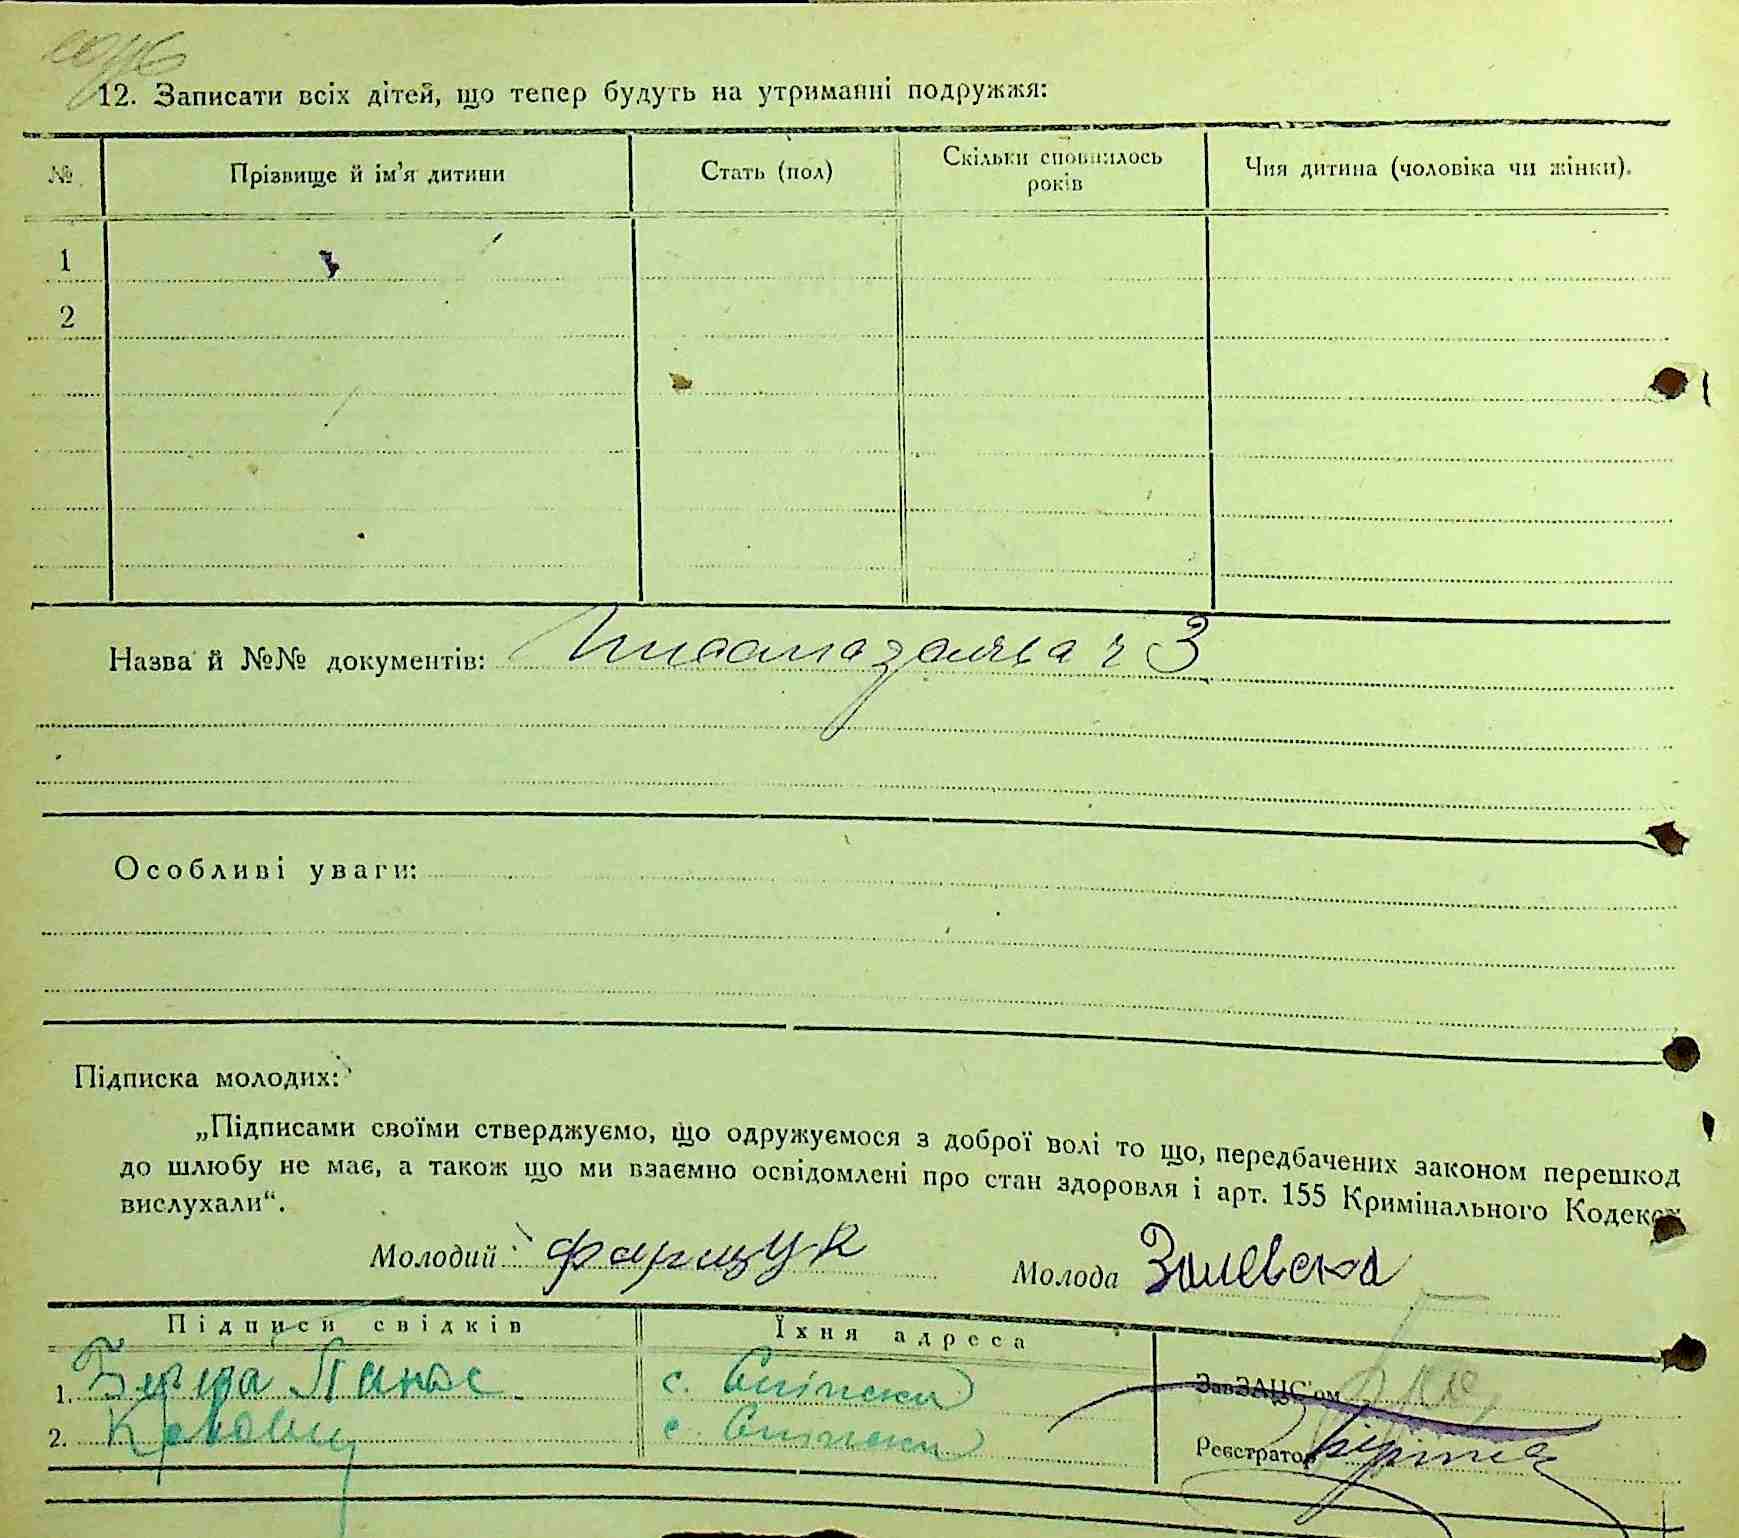 12. Записати всіх дітей, що тепер будуть на утриманні подружжя:
№ Прізвище й ім'я дитини Стать (пол) Скільки сповнилось років Чия дитина (чоловіка чи жінки).
1
2
Назва й №№ документів: заява ч 3
Особливі уваги:
Підписка молодих:
„Підписами своїми стверджуємо, що одружуємося з доброї волі то що, передбачених законом перешкод
до шлюбу не має, а також що ми взаємно освідомлені про стан здоровля і арт. 155 Кримінального Кодексу
вислухали“.
Молодий Молода Залевска
Підписи свідків Їхня адреса
1. Панас с. ЗавЗАЦС'ом
2. с. Реєстратор